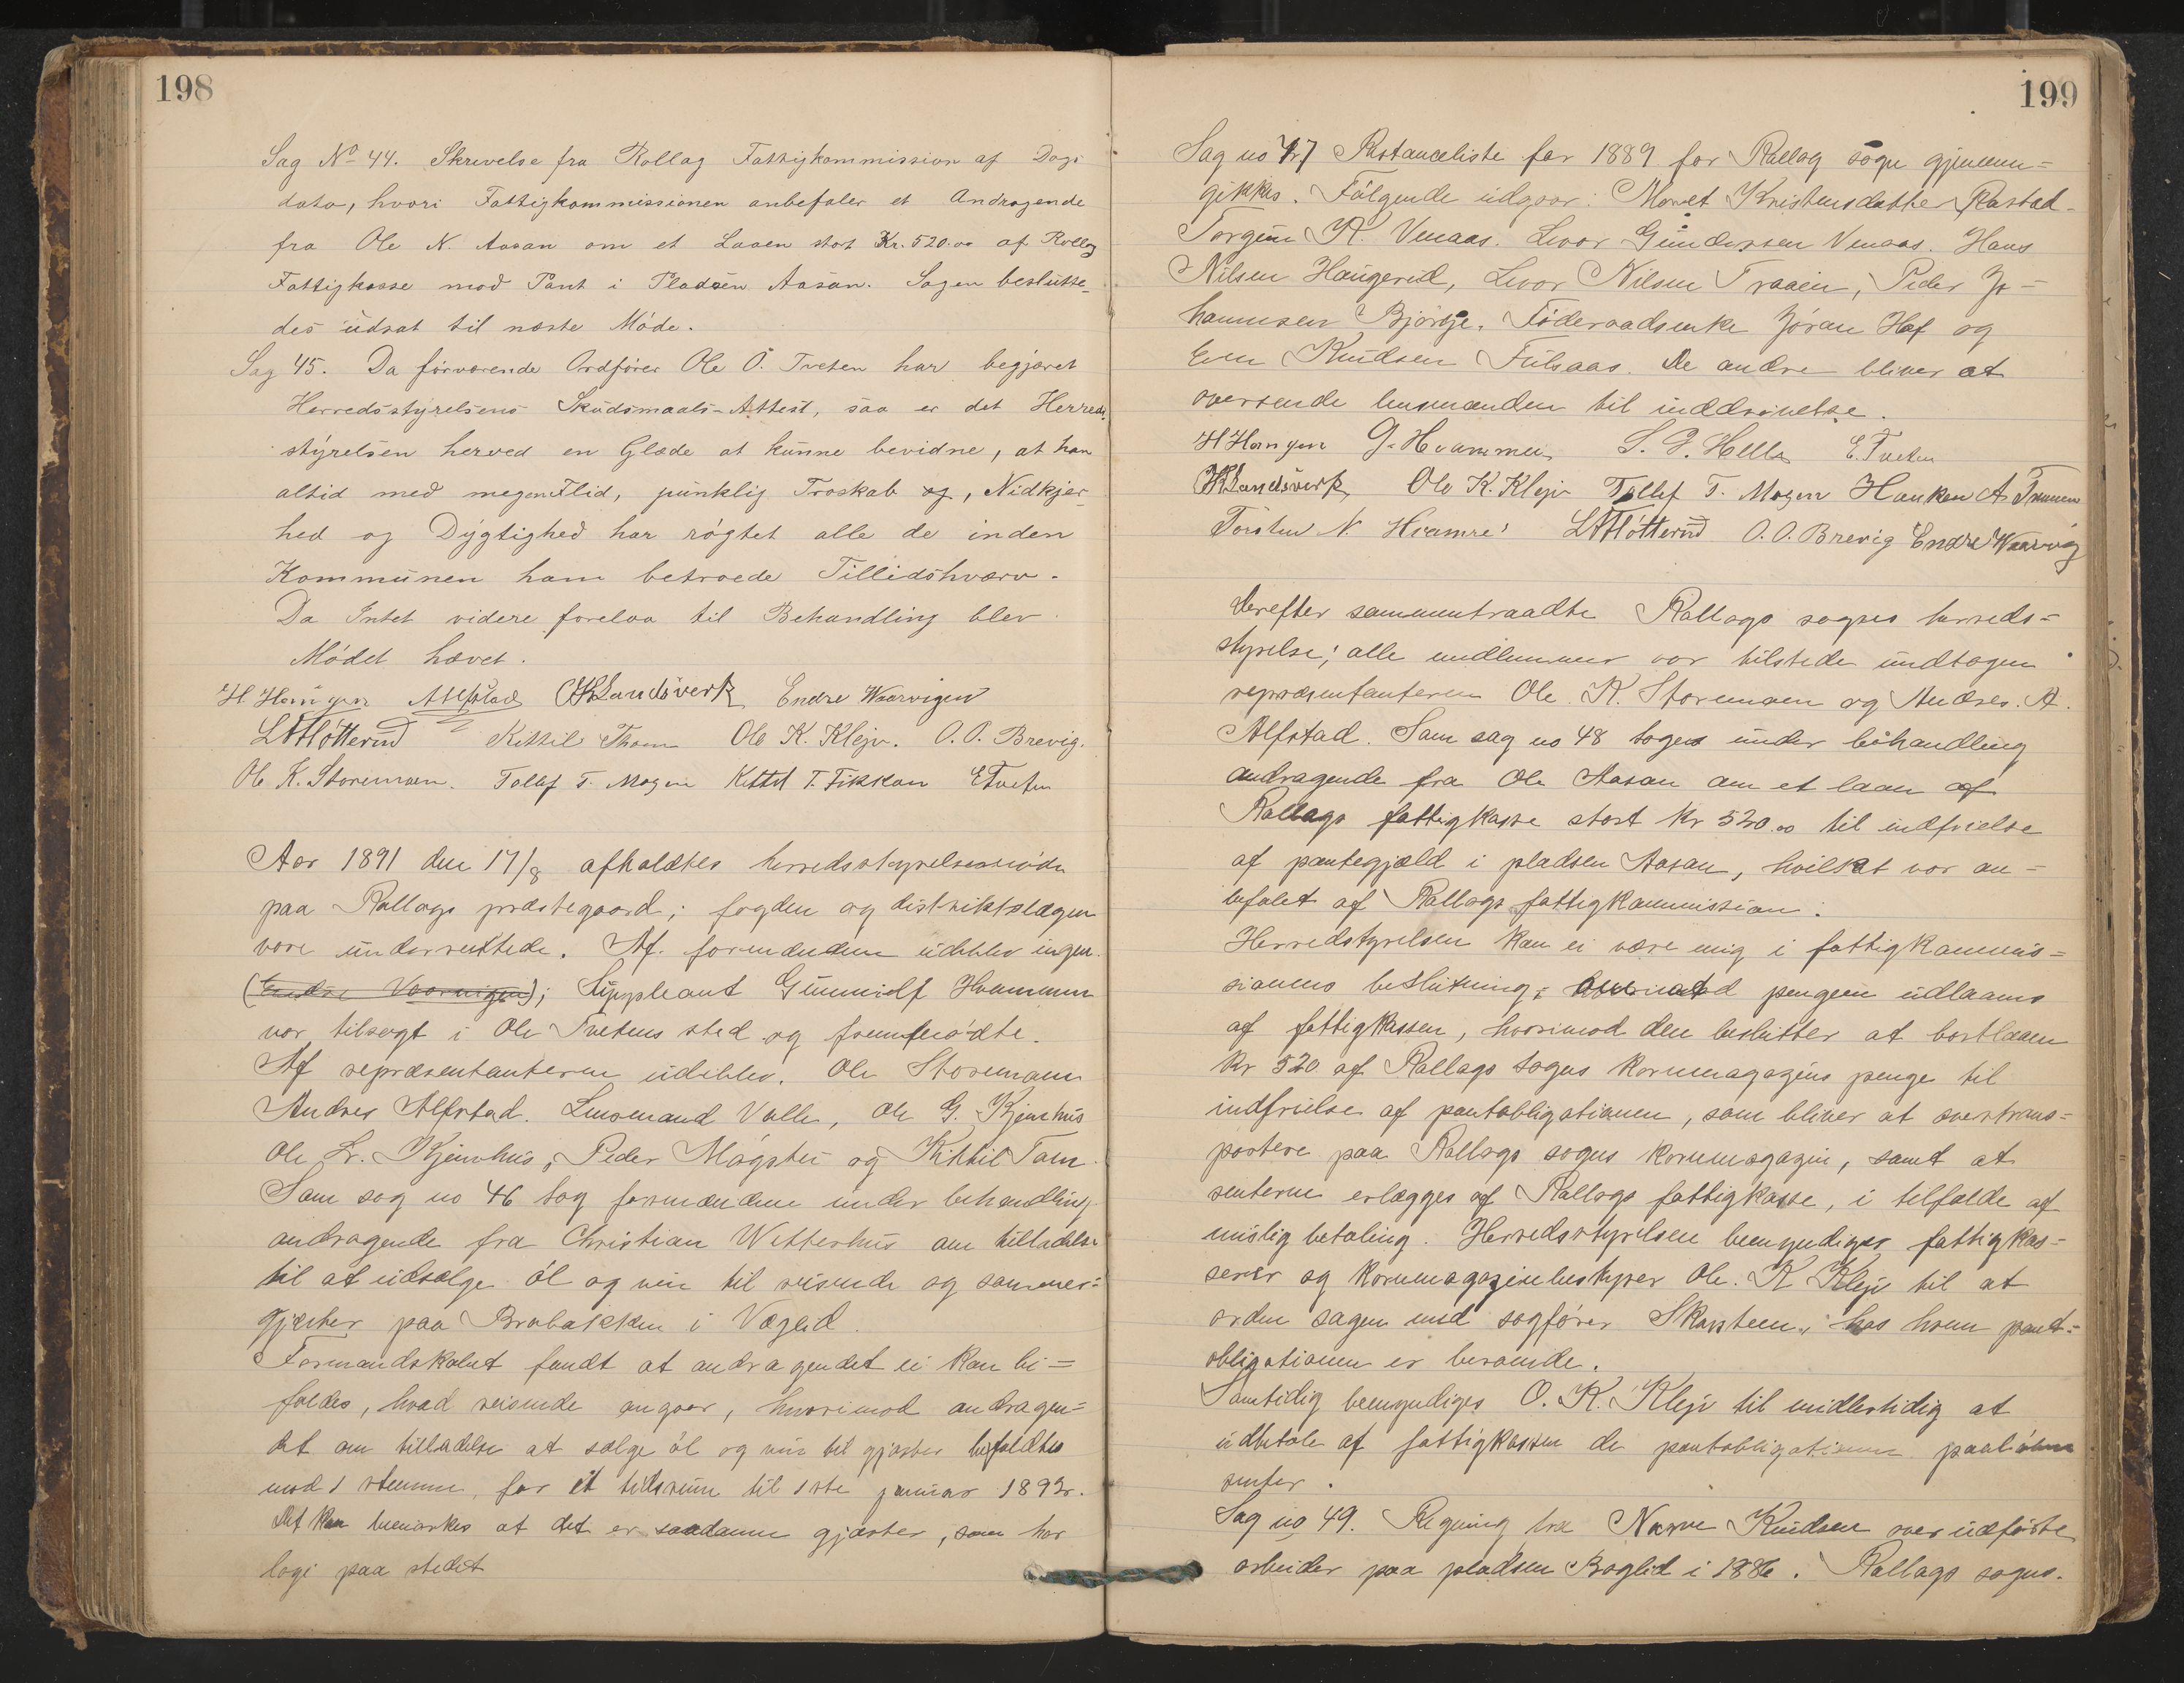 198
Sag No 44. Skrivelse fra Rollag Fattigkommission af Dags
dato, hvori Fattigkommissionen anbefaler et Andragende
fra Ole N. Aasan om et Laaen stort Kr. 520.00 af Rollag
Fattigkasse mod Pant i Pladsen Aasan. Sagen beslutte-
des udsat til næste Møde.
Sag 45. Da forværende Ordfører Ole O. Tveten har begjæret
Herredsstyrelsens Skudsmaals-Attest, saa er det Herreds
styrelsen herved en Glæde at kunne bevidne, at han
altid med megen Flid, punklig Troskab og, Nidkjer-
hed og Dygtighed har røgtet alle de inden
Kommunen ham betroede Tillidshværv.
Da Intet videre forelaa til Behandling blev
Mødet hævet.
H Hangen AAlfstad OKLandsverk Endre Waarvigen
LAFløtterud Kittil Thom Ole K. Klejv. O.O. Brevig.
Ole K. Storemoen. Tollef T. Mogen Kittil T. Fikkan ETveten
Aar 1891 den 17/8 afholdtes herredsstyrelsesmøde
paa Rollags præstegaard; fogden og distriktslægen
vare underrettede. Af formændene udeblev ingen.
(Endre Vaarvigen); Suppleant Gunnulf Hvammen
var tilsagt i Ole Tvetens sted og fremmødte.
Af repræsentanterne udeblev. Ole Storemoen
Andres Alfstad. Lensmand Valle, Ole G. Kjemhus
Ole Lr. Kjemhus, Peder Møgster og Kittil Tom.
Som sag no 46 tog formændene under behandling
andragende fra Christian Wetterhus om tilladelse
til at udsælge øl og vin til reisende og sommer-
gjæster paa Brobakken i Væglid.
Formandskabet fandt at andragendet ei kan bi=
faldes, hvad reisende angaar, hvorimod andragen=
det om tilladelse at sælge øl og vin til gjæster bifaldtes
mod 1 stemme, for et tidsrum til 1ste januar 1892.
Det kan bemærkes at det er saadanne gjæster, som har
logi paa stedet
199
Sag no 47 Restanceliste for 1889 for Rollag sogn gjennem=
gikkes. Følgende udgaar: Maret Kristensdatter Rastad-
Torgeir K. Venaas. Levor Gundersen Venaas. Hans
Nilsen Haugerud, Levor Nilsen Traaen, Peder Jo=
hannesen Bjørge, Føderaadsenke Jøran Hof og
Even Knudsen Fulsaas. De andre bliver at
oversende lensmanden til inddrivelse.
H Hangen G. Hvammen S. G. Helle E. Tveten
OKLandsverk Ole K. Klejv Tollef T. Mogen Haaken A Traaen
Torsten N. Hvamre LAFløtterud O.O. Brevig Endre Waarvig
Derefter sammentraadte Rollags sogns herreds=
styrelse; alle medlemmer var tilstede undtagen
repræsentanterne Ole K. Storemoen og Andres. A.
Alfstad. Som sag no 48 toges under behandling
andragende fra Ole Aasan om et laan af
Rollags fattigkasse stort kr 520.00 til indfrielse
af pantegjæld i pladsen Aasan, hvilket var an=
befalet af Rollags fattigkommission.
Herredstyrelsen kan ei være enig i fattigkommis=
sionens beslutning; pengene udlaanes
af fattigkassen, hvorimod den beslutter at bortlaane
kr 520 af Rollags sogns kornmagazins penge til
indfrielse af pantobligationen, som bliver at overtrans=
portere paa Rollags sogns kornmagazin, samt at
renterne erlægges af Rollags fattigkasse, i tilfælde af
mislig betaling. Herredsstyrelsen bemyndiger fattigkas=
serer og kornmagazinbestyrer Ole. K Klejv til at
orden sagen med sagfører Skarsteen, hos hvem pant=
obligationen er beroende.
Samtidig bemyndiges O. K. Klejv til midlertidig at
udbetale af fattigkassen de pantobligationen paaløbne
renter.
Sag no 49. Regning fra Narve Knudsen over udførte
arbeider paa pladsen Boglid i 1886. Rollags sogns.